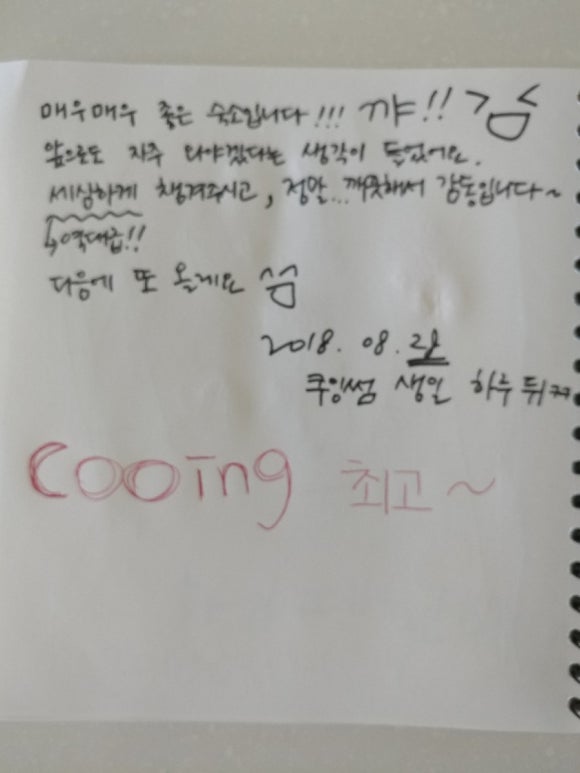 매우매우 좋은 숙소입니다!!! 꺄!!
앞으로도 자주 와야겠다는 생각이 들었어요.
세심하게 챙겨주시고, 정말...깨끗해서 감동입니다~
↳역대급!!
다음에 또 올게요
2018. 08.
쿠잉썸 생일 하루 뒤ㅋㅋ
cooing 최고~